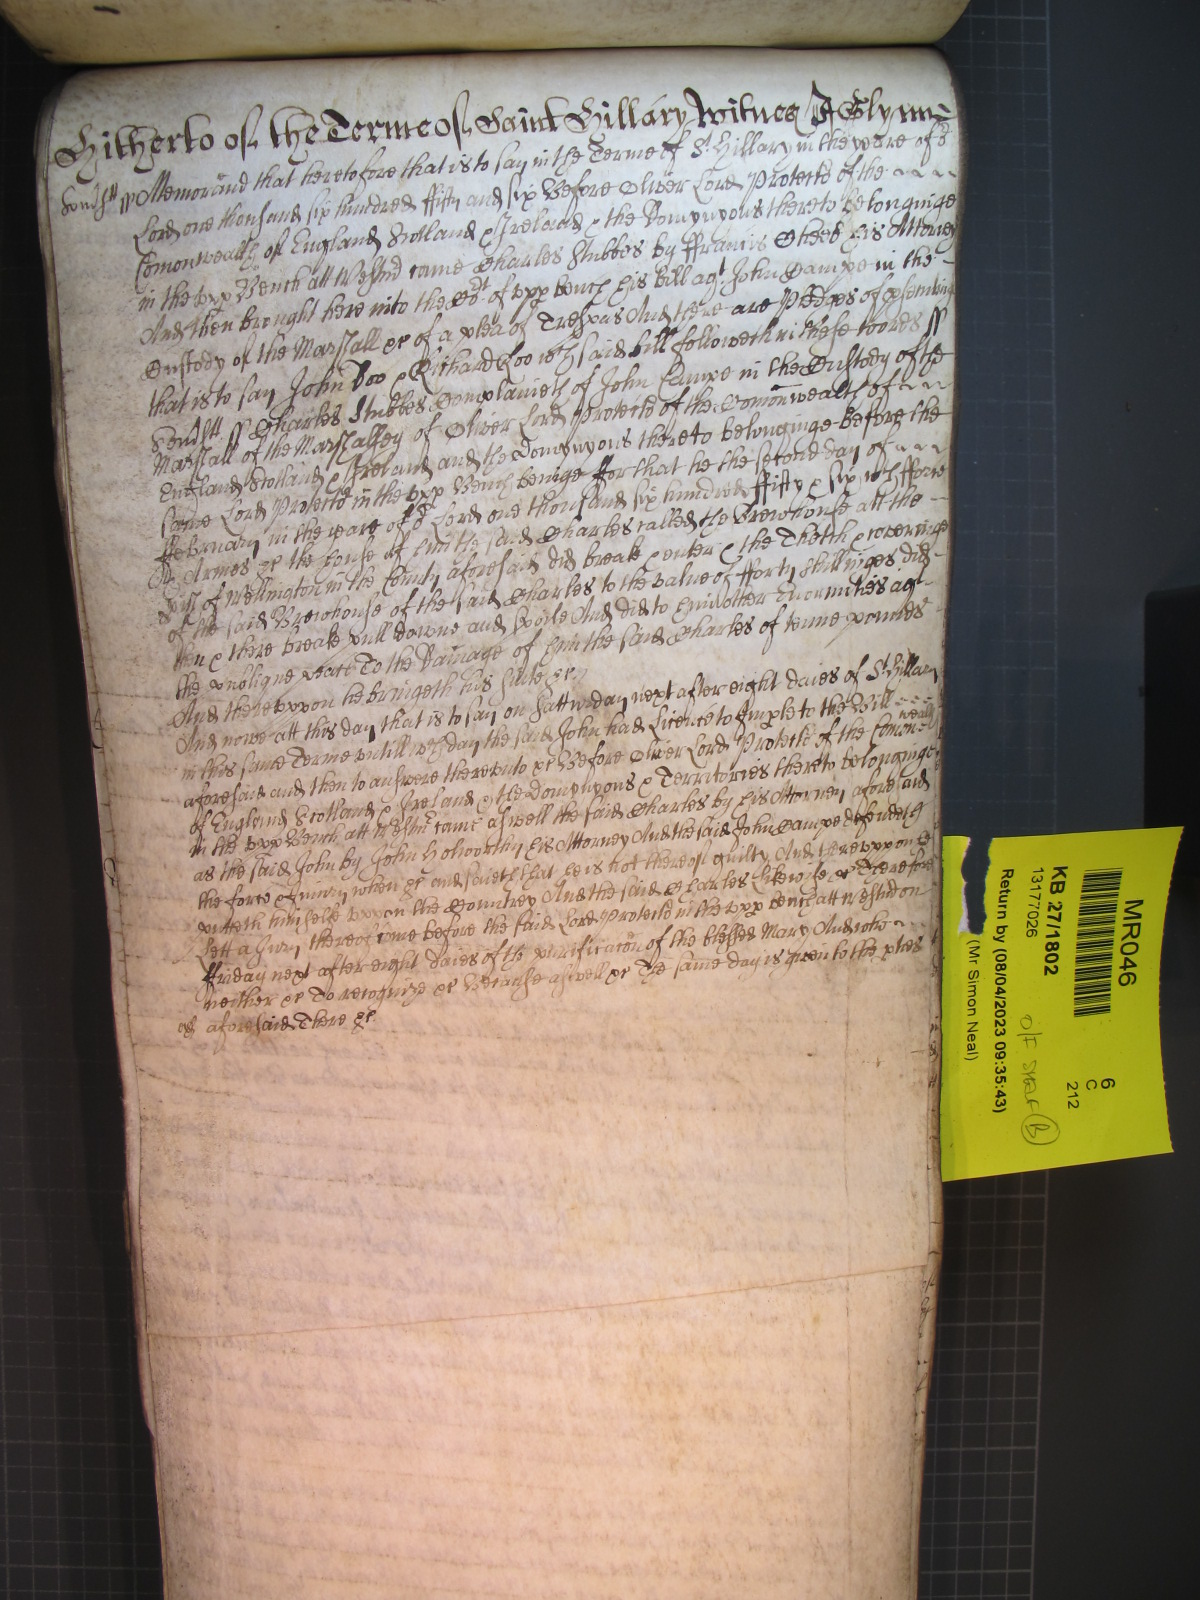 Hitherto of the Terme of Saint Hillary Witnes J Glynne
Memorand that heretofore that is to say in the Terme of St Hillary in the yeare of or
Lord one thousand six hundred fifty and six Before Oliver Lord Protector of the
Comonwealth of England Scotland & Ireland & the Domynyons thereto belonginge
in the upp Bench att Westmr came Charles Stubbes by ffrancis his Attorney
And then brought here into the Cort of upp bench his bill agt John Campe in the
Custody of the Marshall &c of a plea of Trespas And there are Pledges of psentinge
that is to say John Doo & Richard Roo wch said bill followeth in these words ss
ss Charles Stubbes Complaineth of John Campe in the Custody of the
Marshall of the Marshallsey of Oliver Lord Protector of the Comonwealth of
England Scotland & Ireland and the Domynyons thereto belonginge before the
same Lord Protector in the upp Bench beinge ffor that he the second day of
ffebruary in the yeare of or Lord one thousand six hundred ffifty & six wth fforce
& Armes &c the house of him the said Charles called the Brewhouse att the
pish of Wellington in the County aforesaid did break & enter & the Thetch & coveringe
of the said Brewhouse of the said Charles to the value of fforty shillinges did
then & there break pull downe and spoile And did to him other Enormities agt
the publique peace To the Damage of him the said Charles of tenne poundes
And thereuppon he bringeth his suite &c
And nowe att this day that is to say on Satturday next after eight daies of St Hillary
in this same Terme untill wch day the said John had Licence to Imple to the Bill
aforesaid and then to answere thereunto &c Before Oliver Lord Protector of the Comonwealth
of England Scotland & Ireland & the Domynyons & Territories thereto belonginge
in the upp Bench att Westmr came aswell the said Charles by his Attorney aforesaid
as the said John by John Holworthy his Attorney And the said John Campe defendeth
the force & iniury when &c and saieth that he is not thereof guilty And thereuppon
putteth himselfe uppon the Countrey And the said Charles likewise &c Therefore
Lett a Jury thereof come before the said Lord Protector in the upp bench att Westmr on
Friday next after eight daies of the purificacon of the blessed Mary And who
neither &c To recognize &c Because aswell &c The same day is given to the pties
aforesaid There &c
MR046
6
C
212
KB 27/1802
13177026
O/F SHELF B
Return by (08/04/2023 09:35:43)
(Mr Simon Neal)